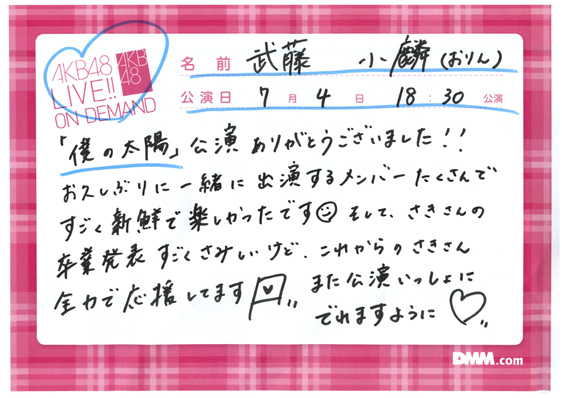 AKB48
LIVE!!
ON DEMAND
AKB
48
名前 武藤 小麟(おりん)
公演日 7月4日 18:30公演
「僕の太陽」公演 ありがとうございました!!
お久しぶりに一緒に出演するメンバーたくさんで
すごく新鮮で楽しかったです そして、さきさんの
卒業発表 すごくさみしいけど、これからのさきさん
全力で応援してます
また公演いっしょに
でれますように
DMM.com